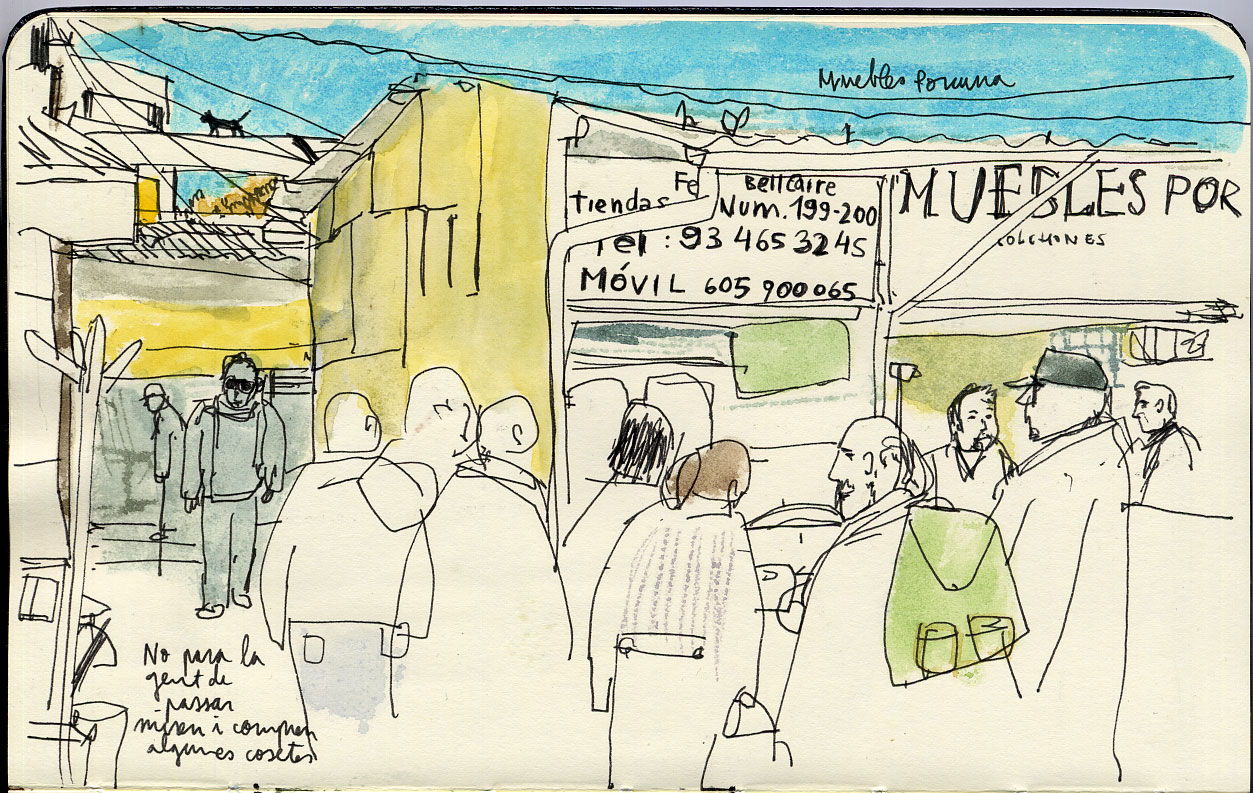 Muebles Porcuna
Fe
tiendas
Bellcaire
Num. 199-200
Tel : 93 465 32 45
MÓVIL 605 900 065
"MUEBLES POR
COLCHONES
No para la
gent de
passar
miren i compren
algunes cosetes